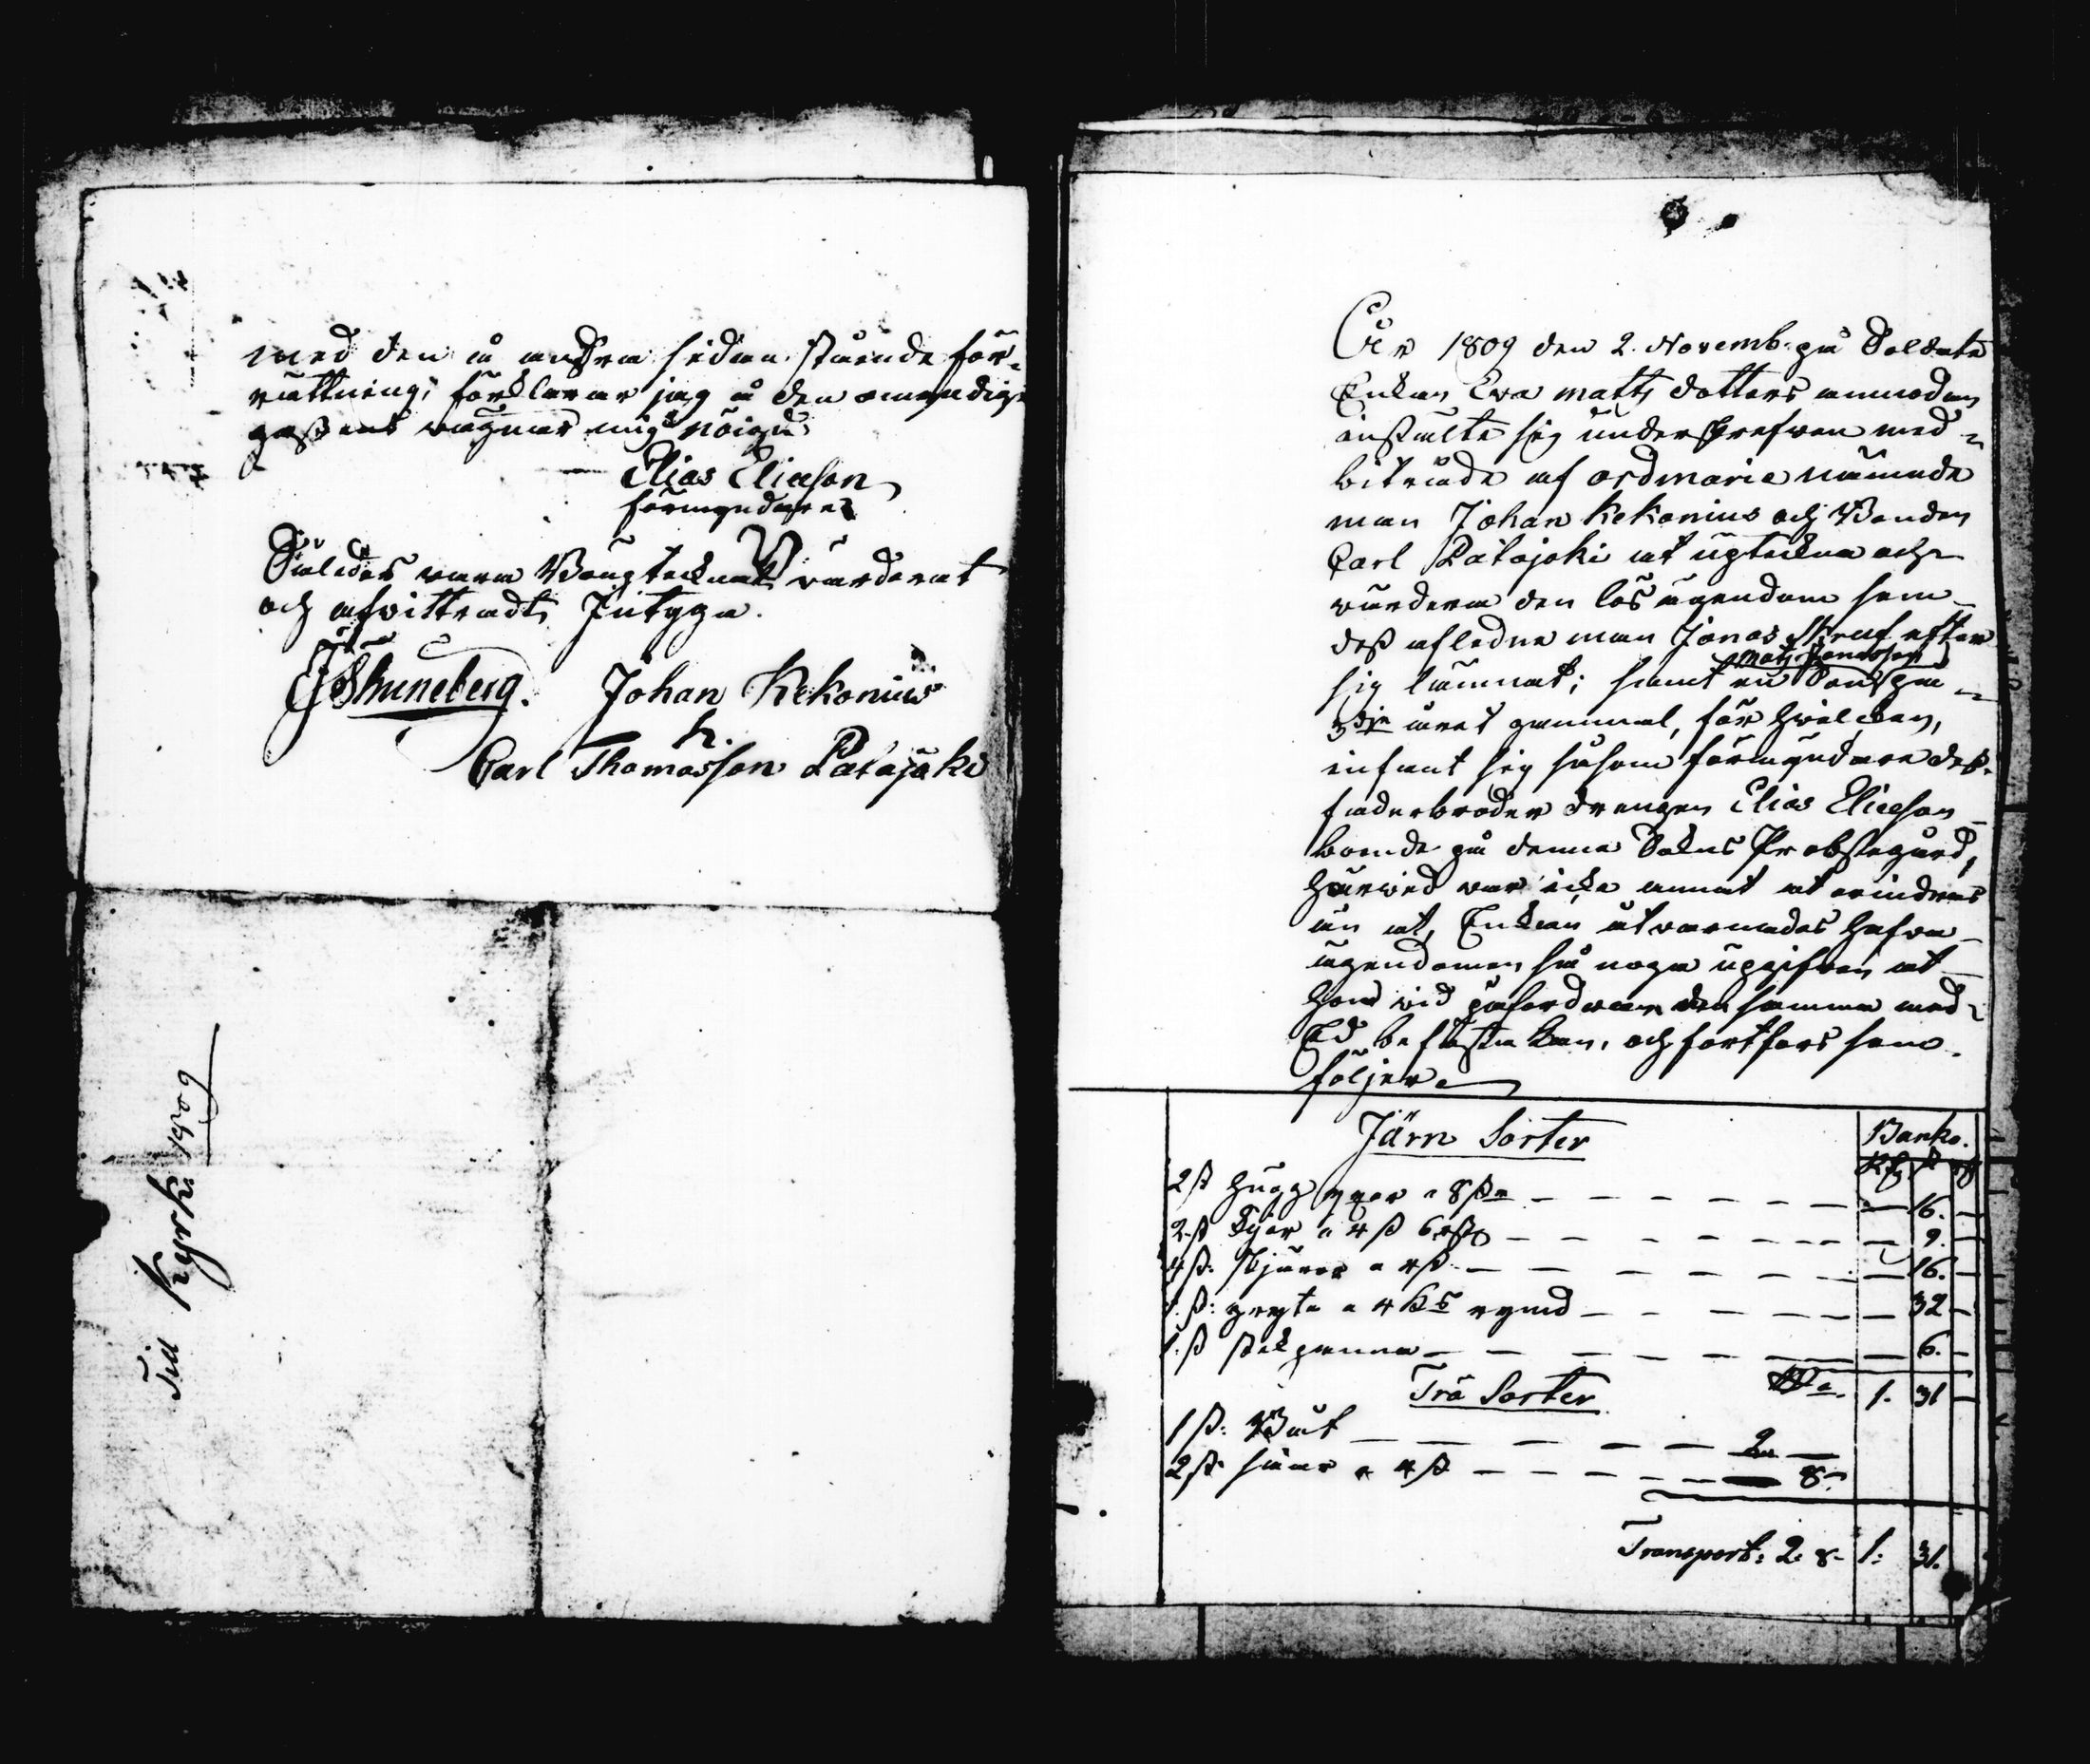 med den å andra sidan stående för-
rättning, förklarar jag å den omyndige
wägnar mig nöigd
Elias Eliæson
förmyndare
Således vara Upteknat värderat
och afvittradt, Intyga.
Johan Kekonius
Carl Thomasson Patajoki
Till Kyrk: 1809
År 1809 den 2. Novemb: på Soldats
Enkan Eva Matts dotters anmodan
instälte sig underskrefven med
biträde af ordinarie nämnde
man Johan Kekonius och Bonden
Carl Patajoki at uptekna och
värdera den lös ägendom som
dess aflidne man Jonas efter
Mats Jonasson
sig lämnat; samt en Son på
3dje året gammal, för hvilcken,
infant sig såsom förmyndare dess
faderbroder drengen Elias Eliæson
boende på denna Sokns Probstegård,
härvid var icke annat at erindras
än at, Enkan åtvarnades hafva
ägendomen så noga upgifven at
hon vid påfordran den samma med
Ed befästa kan, och fortfors som
följer
Järn Sorter Banko.
2 st hugg yxor a 8 sk — 16. —
2 st lijar a 4 sk 6 — 9. —
4 st: skjäror a 4 sk — 16. —
1 st: gryta a 4 rymd — 32 —
1: st stekpanna — 6. —
Trä Sorter 1. 31 —
1 st: Båt — 2. —
2 st. såar a 4 sk — 8.
Transport: 2. 8 1: 31.